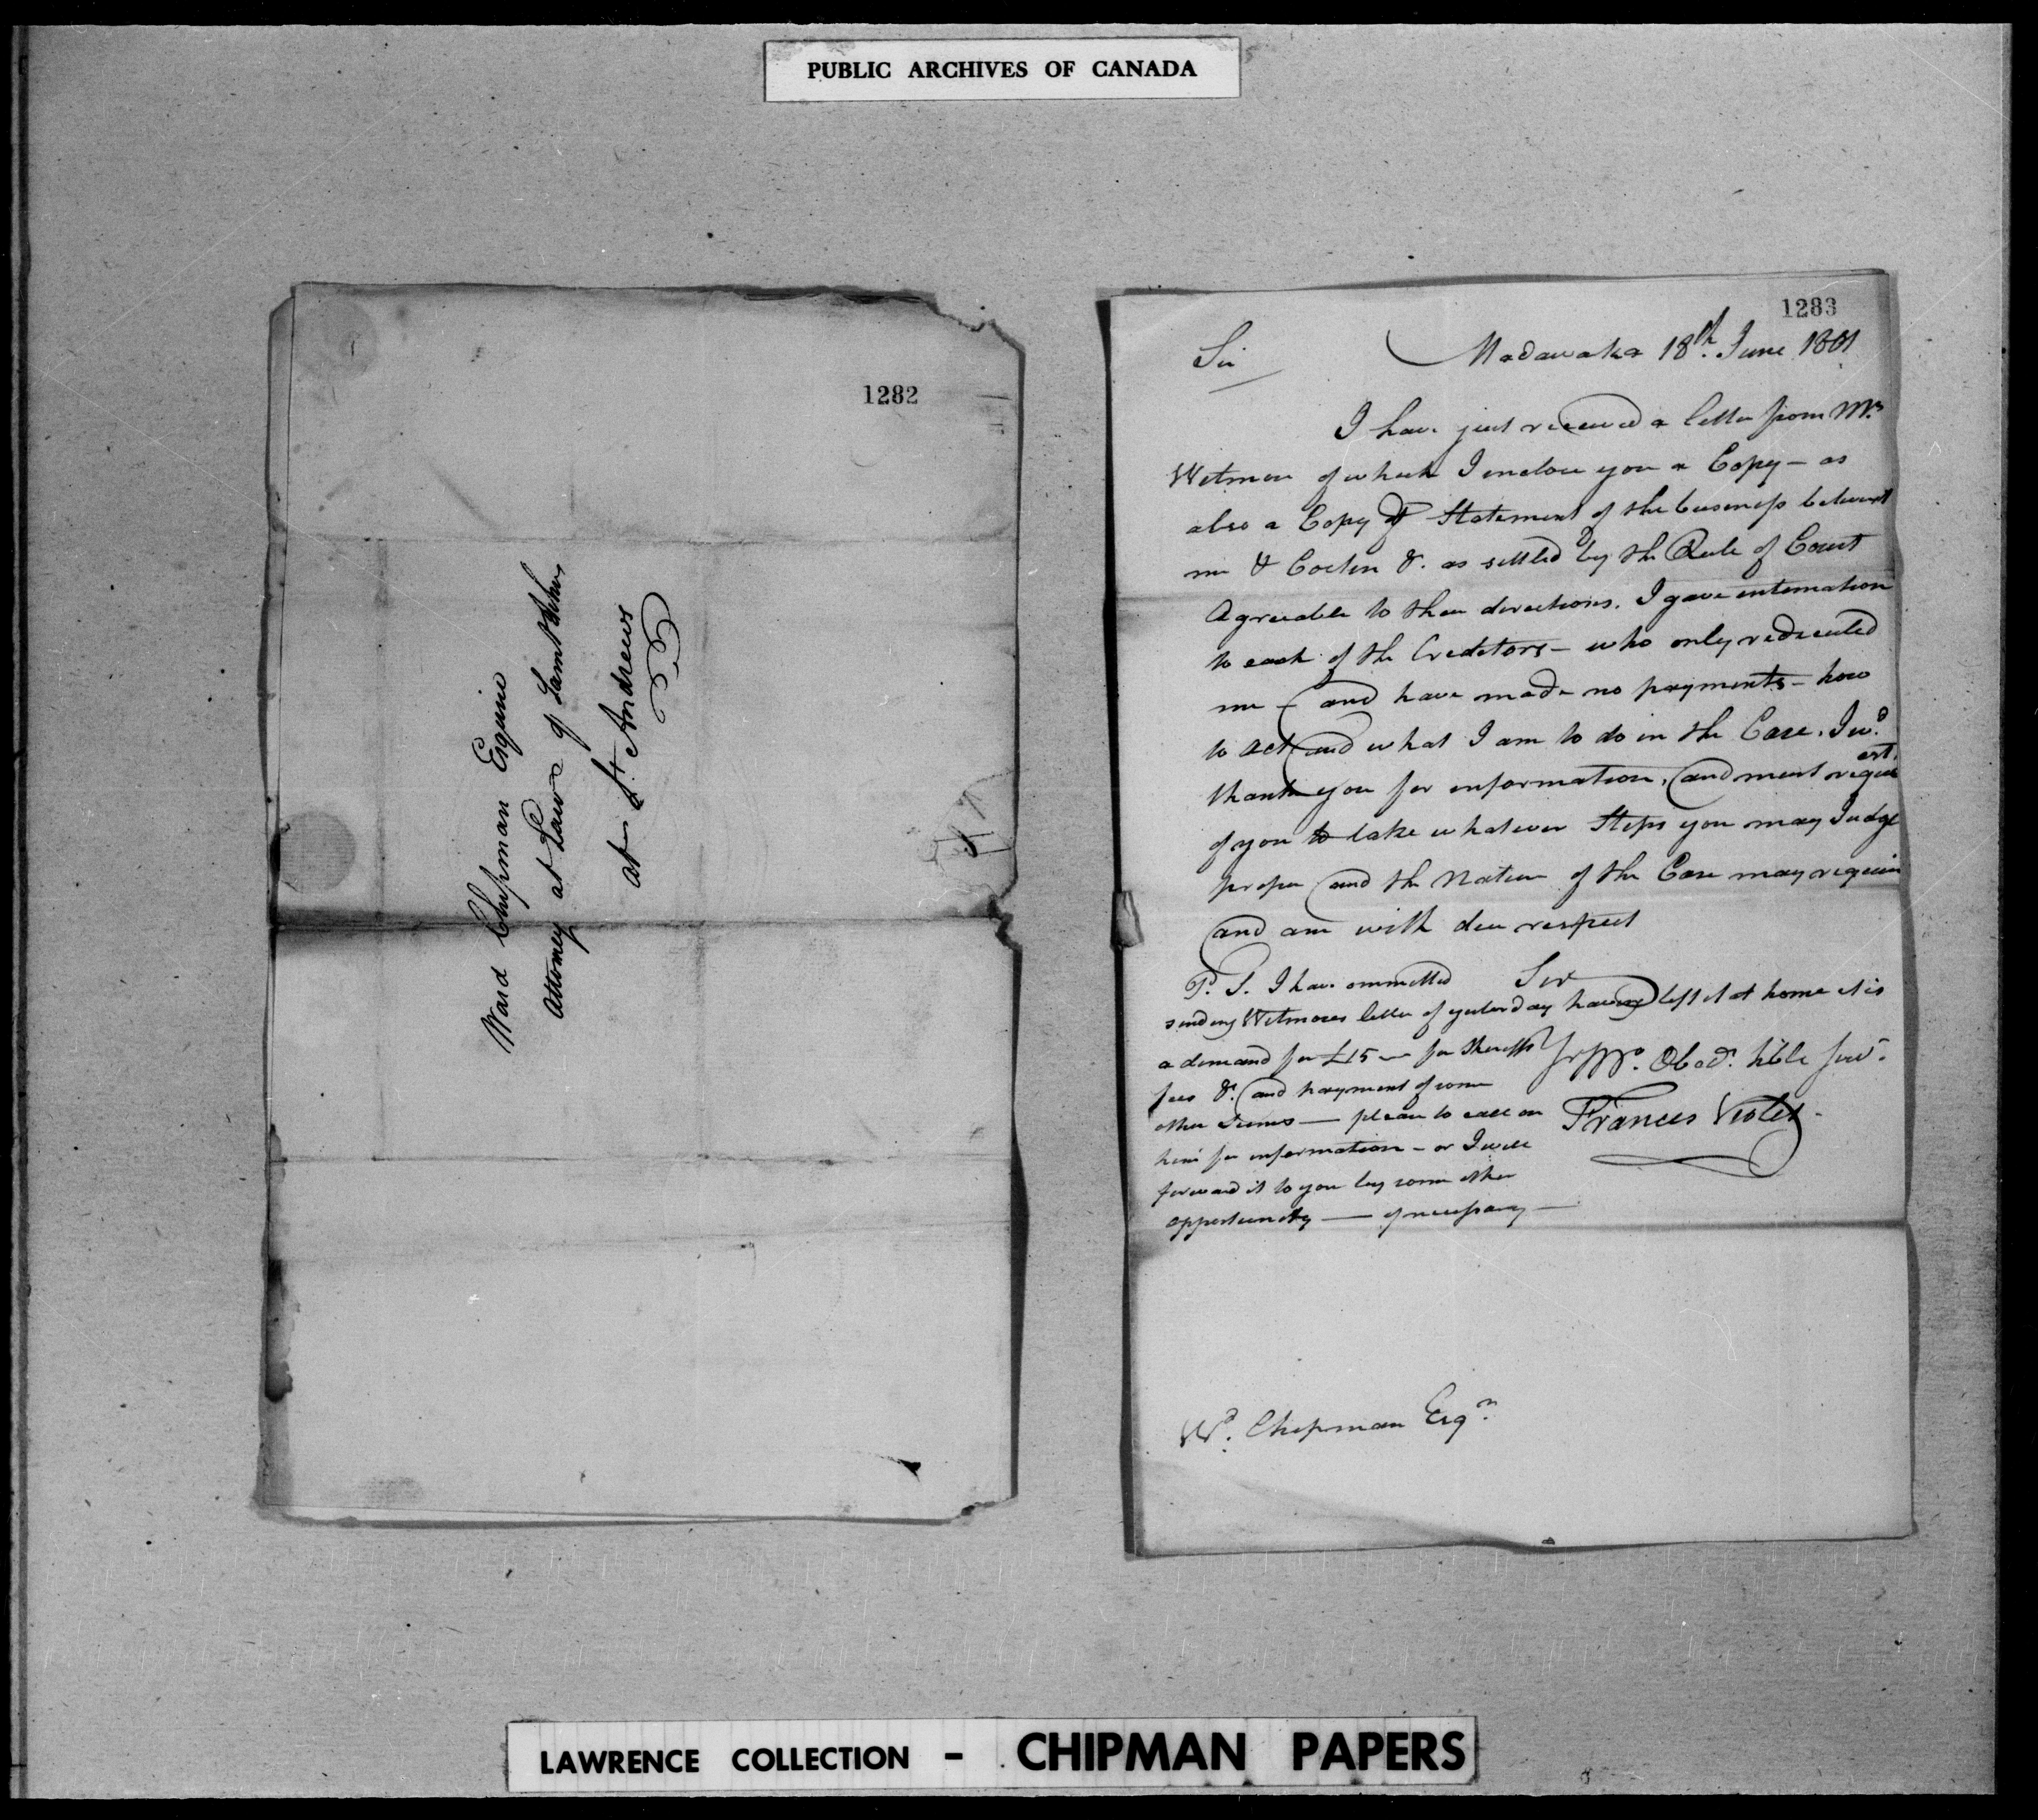 PUBLIC ARCHIVES OF CANADA
1282
Ward Chipman Esquire
Attorney at Law
at St. Andrews
1283
Sir
Madawaska 18th. June 1801
I have just received a letter from Mr.
Witmore of which I enclose you a Copy - as
also a Copy of Statement of the business between
me & &. as settled by the Rule of Court
Agreeable to their directions. I gave intemation
to each of the Creditors - who only rediculed
me - and have made no payments - how
to act and what I am to do in the Case. I wd.
thank you for information, and must request
of you to take whatever Steps you may Judge
proper and the Nature of the Case may require
and am with due respect
Sir
P. S. I have ommitted
sending Witmores letter of yesterday having left it at home it is
a demand for £15 - for Sheriffs
fees &. and payment of some
other Sums - please to call on
him for information - or I will
forward it to you by some other
opportunity - if necessary -
Obed. hble servt.
Frances Violet
Wd. Chipman Esqr.
LAWRENCE COLLECTION - CHIPMAN PAPERS